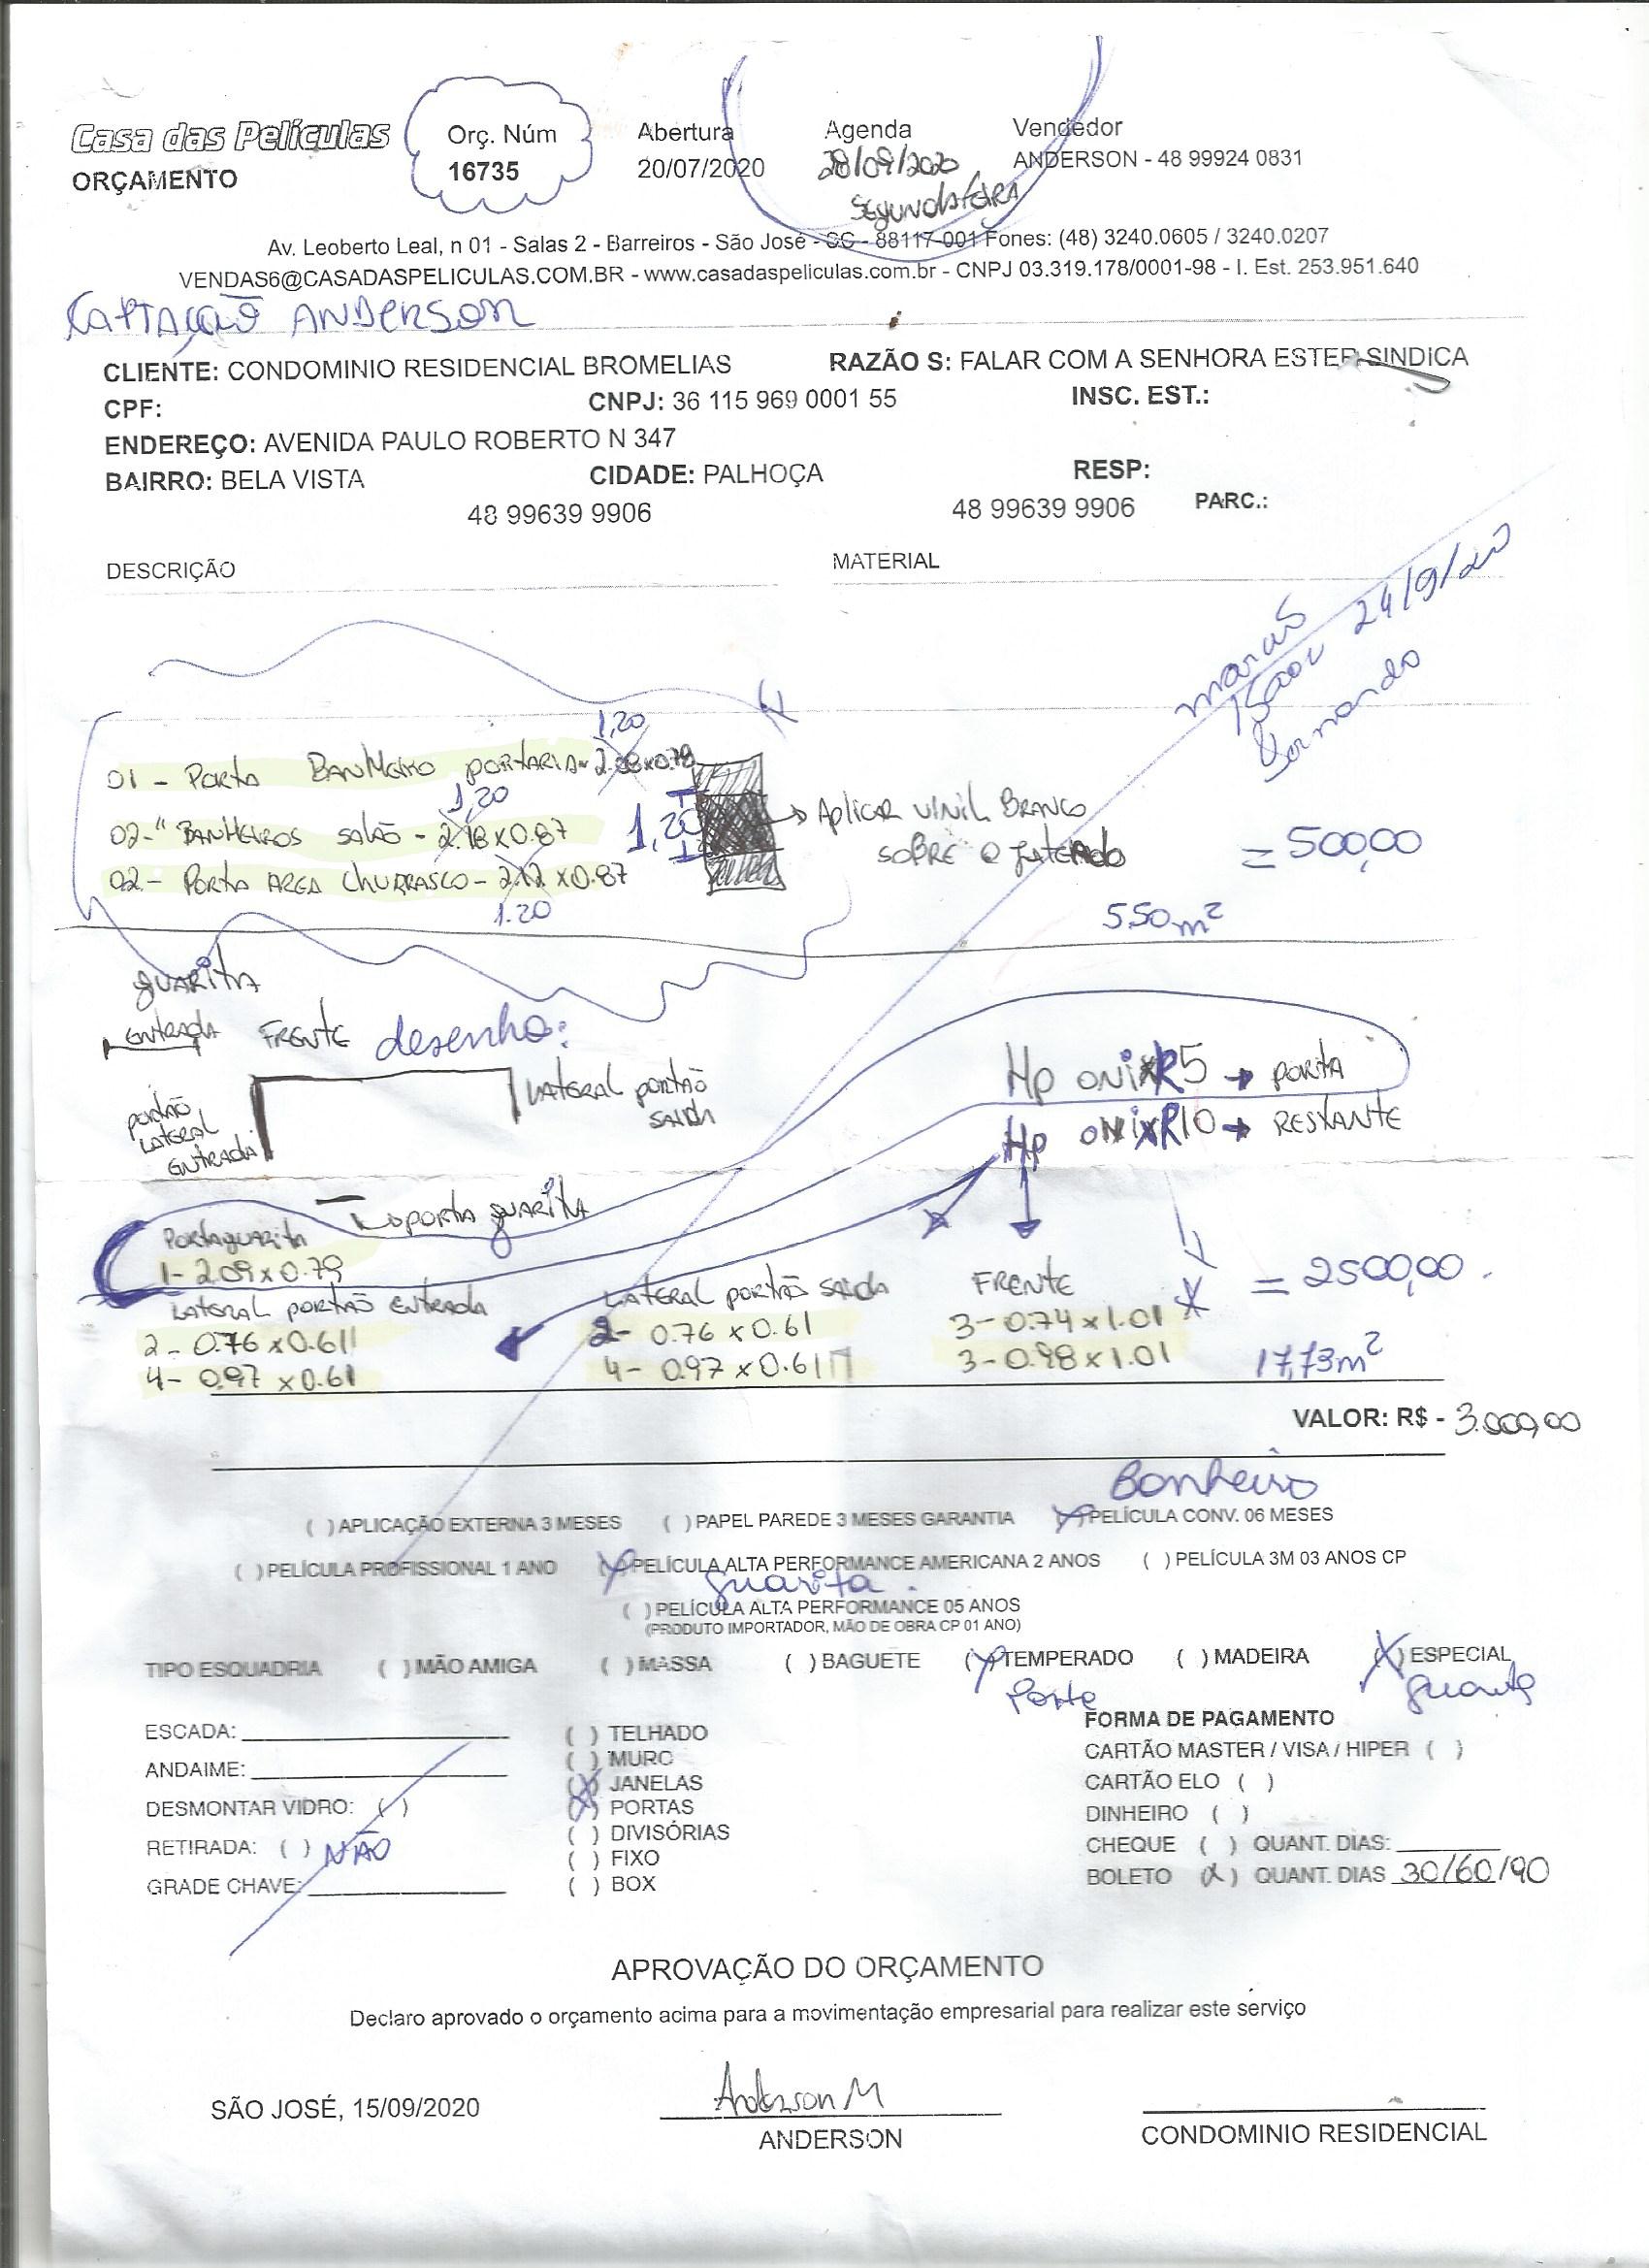 Casa das Películas
ORÇAMENTO
Orç. Núm
16735
Abertura
20/07/2020
Agenda
28/09/2020
SEGUNDA FEIRA
Vendedor
ANDERSON - 48 99924 0831
Av. Leoberto Leal, n 01 - Salas 2 - Barreiros - São José - SC - 88117-001 Fones: (48) 3240.0605 / 3240.0207
VENDAS6@CASADASPELICULAS.COM.BR - www.casadaspeliculas.com.br - CNPJ 03.319.178/0001-98 - I. Est. 253.951.640
CAPTAÇÃO ANDERSON
CLIENTE: CONDOMINIO RESIDENCIAL BROMELIAS RAZÃO S: FALAR COM A SENHORA ESTER SINDICA
CPF: CNPJ: 36 115 969 0001 55 INSC. EST.:
ENDEREÇO: AVENIDA PAULO ROBERTO N 347
BAIRRO: BELA VISTA CIDADE: PALHOÇA RESP:
48 99639 9906 48 99639 9906 PARC.:
DESCRIÇÃO MATERIAL
24/9/20
1,20
01 - PORTA BANHEIRO PORTARIA - 2.08x0.78
1,20
02 - " BANHEIROS SALÃO - 2.18x0.87
1,20
APLICAR VINIL BRANCO
SOBRE O JATEADO
= 500,00
02 - PORTA AREA CHURRASCO - 2.12 x0.87
1.20
5,50m²
GUARITA
ENTRADA FRENTE desenho:
PORTÃO
LATERAL
ENTRADA
LATERAL PORTÃO
SAIDA
HP ONIX R5 → PORTA
HP ONIX R10 → RESTANTE
PORTA GUARITA
PORTA GUARITA
1- 2.09x0.79
= 2500,00
LATERAL PORTÃO ENTRADA
2 - 0.76 x 0.61
4 - 0.97 x 0.61
LATERAL PORTÃO SAIDA
2- 0.76 x 0.61
4- 0.97 x 0.61
FRENTE
3- 0.74x1.01
3- 0.98x1.01
17,73m²
VALOR: R$ - 3.000,00
Banheiro
( ) APLICAÇÃO EXTERNA 3 MESES ( ) PAPEL PAREDE 3 MESES GARANTIA (X) PELÍCULA CONV. 06 MESES
( ) PELÍCULA PROFISSIONAL 1 ANO (X) PELÍCULA ALTA PERFORMANCE AMERICANA 2 ANOS ( ) PELÍCULA 3M 03 ANOS CP
guarita
( ) PELÍCULA ALTA PERFORMANCE 05 ANOS
(PRODUTO IMPORTADOR, MÃO DE OBRA CP 01 ANO)
TIPO ESQUADRIA ( ) MÃO AMIGA ( ) MASSA ( ) BAGUETE (X) TEMPERADO ( ) MADEIRA (X) ESPECIAL
guarita
ESCADA:
ANDAIME:
DESMONTAR VIDRO: ( )
RETIRADA: ( ) NÃO
GRADE CHAVE:
( ) TELHADO
( ) MURO
(X) JANELAS
(X) PORTAS
( ) DIVISÓRIAS
( ) FIXO
( ) BOX
FORMA DE PAGAMENTO
CARTÃO MASTER / VISA / HIPER ( )
CARTÃO ELO ( )
DINHEIRO ( )
CHEQUE ( ) QUANT. DIAS:
BOLETO (X) QUANT. DIAS 30/60/90
APROVAÇÃO DO ORÇAMENTO
Declaro aprovado o orçamento acima para a movimentação empresarial para realizar este serviço
Anderson M
SÃO JOSÉ, 15/09/2020
ANDERSON
CONDOMINIO RESIDENCIAL